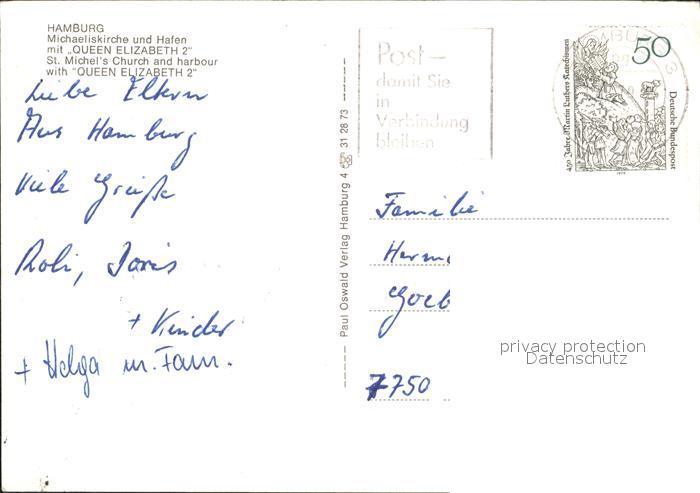 HAMBURG
Michaeliskirche und Hafen
mit „QUEEN ELIZABETH 2"
St. Michel's Church and harbour
with "QUEEN ELIZABETH 2"
Liebe Eltern
Aus Hamburg
Viele Grüße
Robi, Doris
+ Kinder
+ Helga m. Fam.
Paul Oswald Verlag Hamburg 4 31 28 73
Post –
damit Sie
in
Verbindung
bleiben
50
450 Jahre Martin Luthers Katechismen
Deutsche Bundespost
1979
Familie
Herm
Goeb
7750
privacy protection
Datenschutz